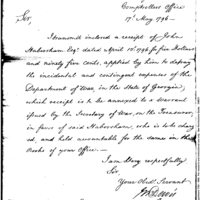 Comptrollers Office
17th May 1796
Sir,
I transmit inclosed a receipt of John
Habersham Esqr. dated April 16th 1796 for five Dollars
and ninety five cents, applied by him to defray
the incidental and contingent expences of the
Department of War, in the State of Georgia,
which receipt is to be annexed to a warrant
issued by the Secretary of War, on the Treasurer,
in favor of said Habersham, who is to be charg
ed, and held accountable for the same in the
Books of your Office.
I am Very respectfully
Sir,
Your Obedt. Servant
Jn Davis